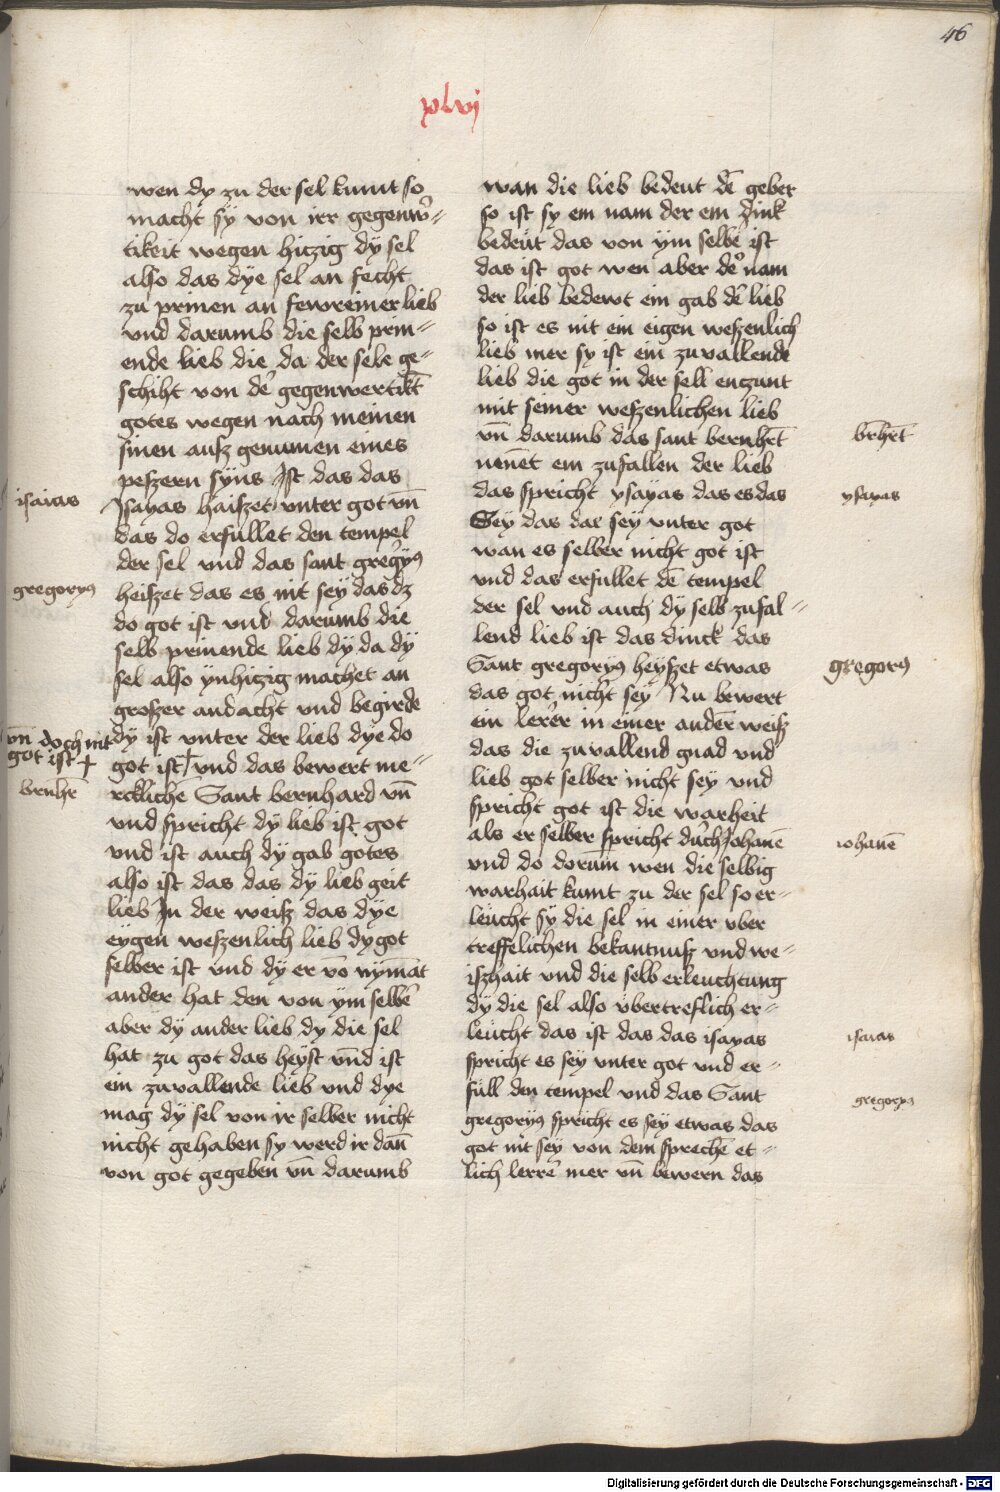 46
xlvj
wen dy zu der sel kumt so
macht sy von irr gegenw̉⸗
tikeit wegen hiczig dÿ sel
also das dÿe sel an fecht
zu prinen an fewreiner lieb
vnd darumb die selb prin⸗
ende lieb die da der sele ge⸗
schiht von dē gegenwertikt̄
gotes wegen nach meinen
sinen ausz genumen eines
peszern syns Ist das das
isaias
Isayas haiszet vnter got vn̄
das do erfullet den tempel
der sel vnd das sant gregyꝰ
gregoryꝰ
heiszet das es nit sey das dz
do got ist vnd darumb die
selb prinende lieb dÿ da dÿ
sel also ynhiczig machet an
groszer andacht vnd begirde
vn̄ doch nit
got ist +
dÿ ist vnter der lieb dÿe do
got ist + vnd das bewert me⸗
brnhr̄
rckliche Sant bernhard vn̄
vnd spricht dÿ lieb ist got
vnd ist auch dÿ gab gotes
also ist das das dÿ lieb geit
lieb In der weisz das dÿe
eÿgen weszenlich lieb dy got
selber ist vnd dÿ er vō nymāt
ander hat den von ym selbē
aber dÿ ander lieb dy die sel
hat zu got das heÿst vn̄d ist
ein zuvallende lieb vnd dÿe
mag dÿ sel von ir selber nicht
nicht gehaben sy werd ir dan̄
von got gegeben vn̄ darumb
wan die lieb bedeut dē geber
so ist sy ein nam der ein dink
bedeüt das von ÿm selbē ist
das ist got wen aber dē nam
der lieb bedewt ein gab dē lieb
so ist es nit ein eigen weszenlich
lieb mer sy ist ein zuvallende
lieb die got in der sell enczunt
mit seiner weszenlichen lieb
vn̄ darumb das sant bernhr̄t
br̄hr̄t
nen̄et ein zufallen der lieb
das spricht ysayas das es das
ysayas
Sey das dar sey vnter got
wan es selber nicht got ist
vnd das erfullet dē tempel
der sel vnd auch dÿ selb zufal⸗
lend lieb ist das dinck das
Sant gregoryꝰ heÿszet etwas
gregorꝰ
das got nicht sey Nu bewert
ein lerer in einer ander̄ weisz
das die zuvallend gnad vnd
lieb got selber nicht sey vnd
spricht got ist die warheit
als er selber spricht durch Johanē
iohanē
vnd do dorum wen die selbig
warhait kumt zu der sel so er⸗
leücht sÿ die sel in einer vber
treffelichen bekantnusz vnd we⸗
iszhait vnd die selb erleuchtung
dÿ die sel also übertreflich er⸗
leücht das ist das das isayas
isaias
spricht es sey vnter got vnd er⸗
füll den tempel vnd das Sant
gregoryꝰ
gregoryꝰ spricht es sey etwas das
got nit sey von dem sprechē et⸗
lich lerrē mer vn̄ bewern das
Digitalisierung gefördert durch die Deutsche Forschungsgemeinschaft - DFG